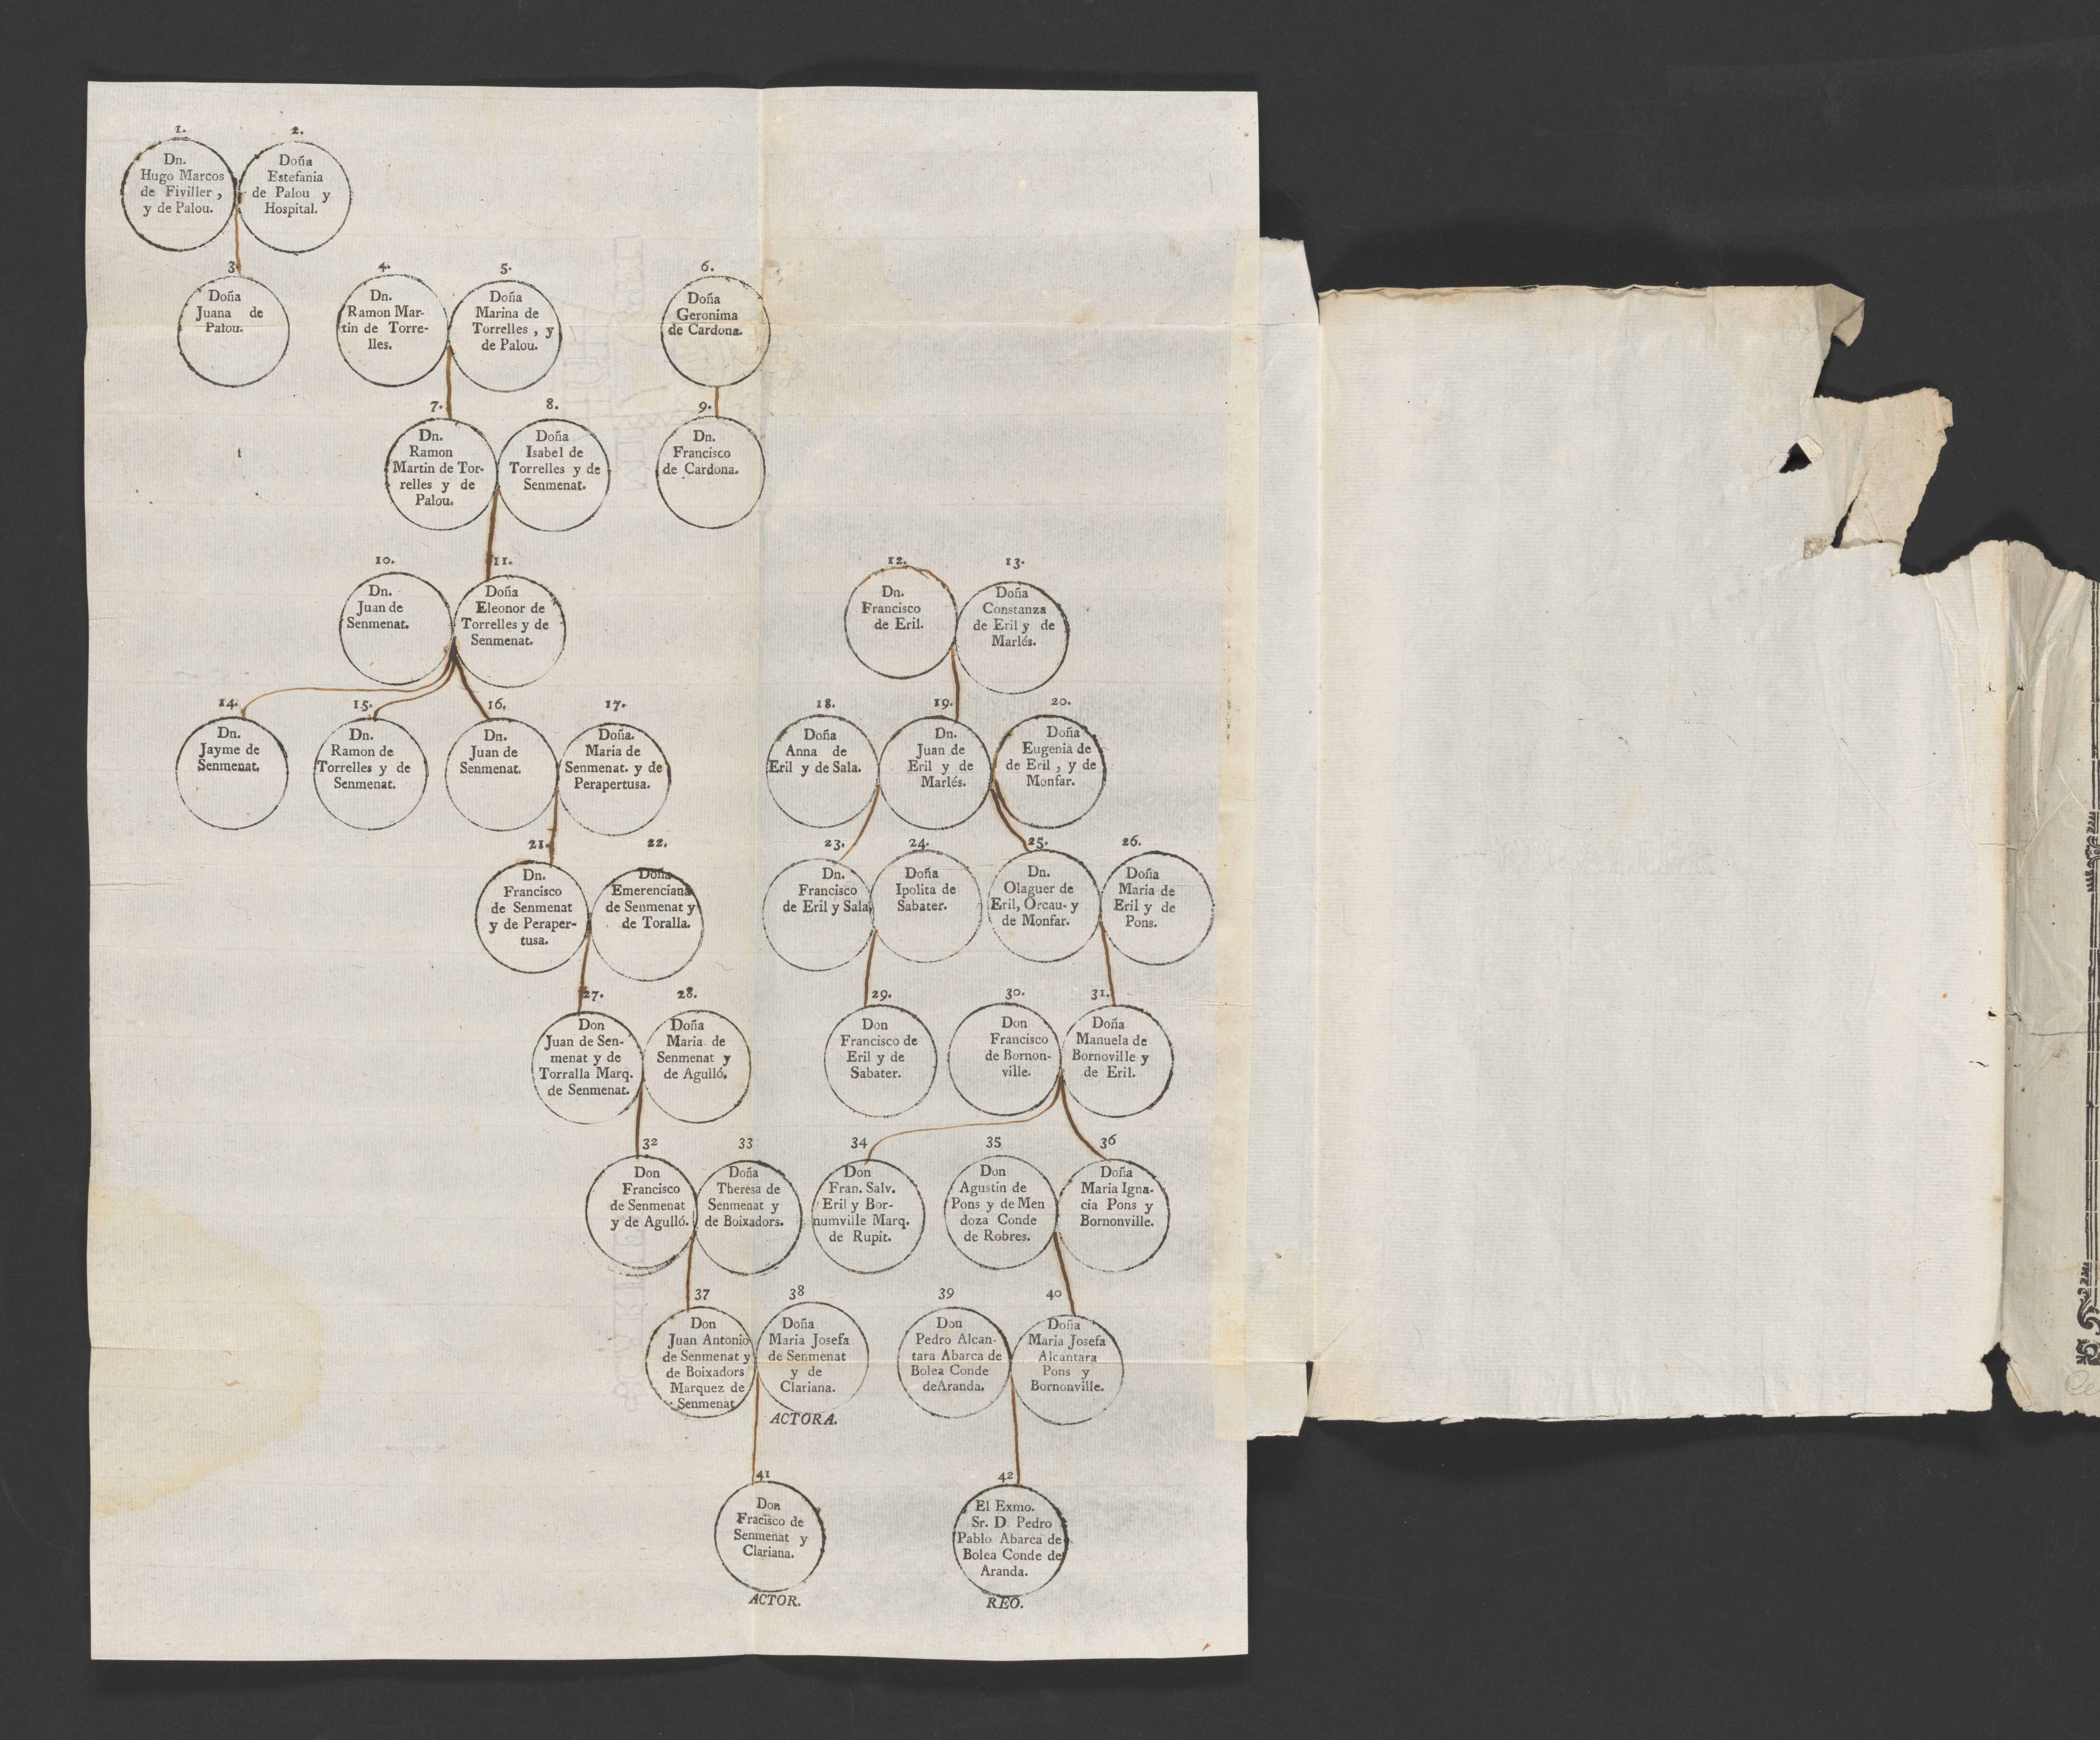 1.
Dn.
Hugo Marcos
de Fiviller,
y de Palou.
2.
Doña
Estefania
de Palou y
Hospital.
3.
Doña
Juana de
Palou.
4.
Dn.
Ramon Mar-
tin de Torre-
lles.
5.
Doña
Marina de
Torrelles, y
de Palou.
6.
Doña
Geronima
de Cardona.
7.
Dn.
Ramon
Martin de Tor-
relles y de
Palou.
8.
Doña
Isabel de
Torrelles y de
Senmenat.
9.
Dn.
Francisco
de Cardona.
10.
Dn.
Juan de
Senmenat.
11.
Doña
Eleonor de
Torrelles y de
Senmenat.
12.
Dn.
Francisco
de Eril.
13.
Doña
Constanza
de Eril y de
Marlés.
14.
Dn.
Jayme de
Senmenat.
15.
Dn.
Ramon de
Torrelles y de
Senmenat.
16.
Dn.
Juan de
Senmenat.
17.
Doña.
Maria de
Senmenat. y de
Perapertusa.
18.
Doña
Anna de
Eril y de Sala.
19.
Dn.
Juan de
Eril y de
Marlés.
20.
Doña
Eugenia de
de Eril, y de
Monfar.
21.
Dn.
Francisco
de Senmenat
y de Peraper-
tusa.
22.
Doña
Emerenciana
de Senmenat y
de Toralla.
23.
Dn.
Francisco
de Eril y Sala.
24.
Doña
Ipolita de
Sabater.
25.
Dn.
Olaguer de
Eril, Orcau- y
de Monfar.
26.
Doña
Maria de
Eril y de
Pons.
27.
Don
Juan de Sen-
menat y de
Torralla Marq.
de Senmenat.
28.
Doña
Maria de
Senmenat y
de Agulló.
29.
Don
Francisco de
Eril y de
Sabater.
30.
Don
Francisco
de Bornon-
ville.
31.
Doña
Manuela de
Bornoville y
de Eril.
32
Don
Francisco
de Senmenat
y de Agulló.
33
Doña
Theresa de
Senmenat y
de Boixadors.
34
Don
Fran. Salv.
Eril y Bor-
numville Marq.
de Rupit.
35
Don
Agustin de
Pons y de Men
doza Conde
de Robres.
36
Doña
Maria Igna-
cia Pons y
Bornonville.
37
Don
Juan Antonio
de Senmenat y
de Boixadors
Marquez de
Senmenat
38
Doña
Maria Josefa
de Senmenat
y de
Clariana.
ACTORA.
39
Don
Pedro Alcan-
tara Abarca de
Bolea Conde
deAranda.
40
Doña
Maria Josefa
Alcantara
Pons y
Bornonville.
41
Don
Fracisco de
Senmenat y
Clariana.
ACTOR.
42
El Exmo.
Sr. D Pedro
Pablo Abarca de
Bolea Conde de
Aranda.
REO.